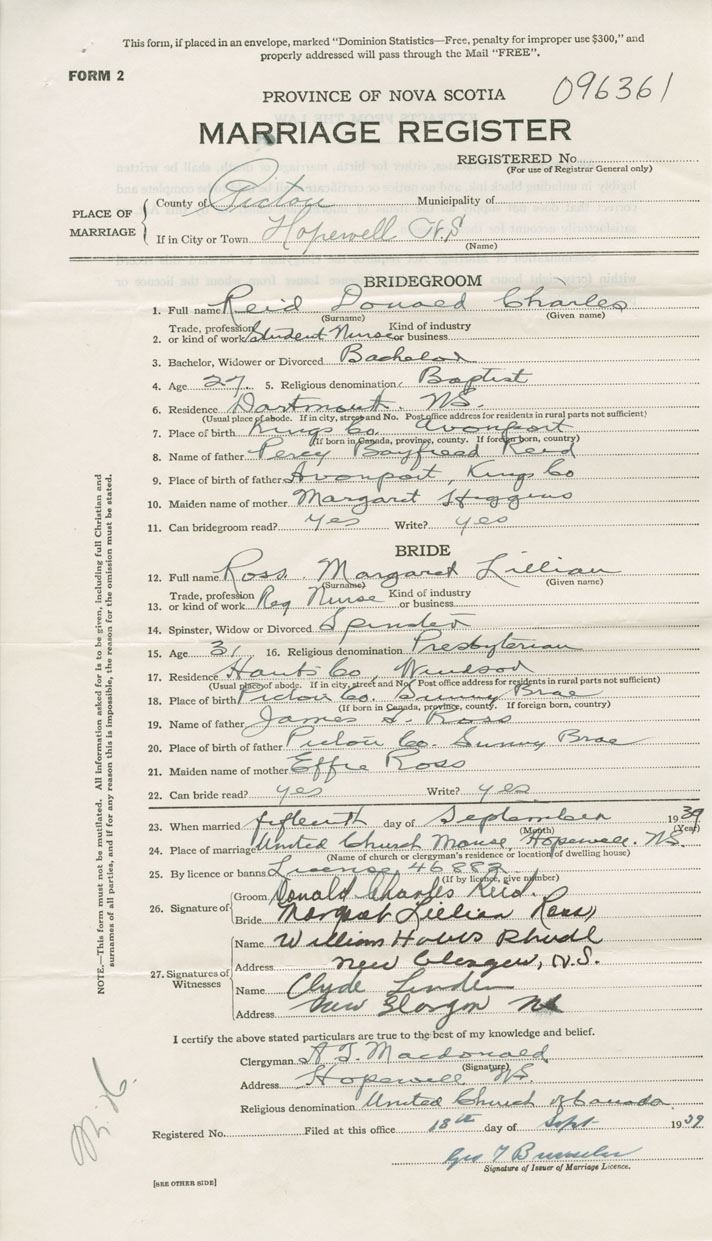 This form, if placed in an envelope, marked "Dominion Statistics—Free, penalty for improper use $300," and
properly addressed will pass through the Mail "FREE".
FORM 2
096361
PROVINCE OF NOVA SCOTIA
MARRIAGE REGISTER
REGISTERED No.
(For use of Registrar General only)
PLACE OF MARRIAGE
County of Pictou Municipality of
If in City or Town Hopewell N.S
(Name)
BRIDEGROOM
1. Full name Reid Donald Charles
(Surname) (Given name)
Trade, profession Kind of industry
2. or kind of work Student Nurse or business
3. Bachelor, Widower or Divorced Bachelor
4. Age 27. 5. Religious denomination Baptist
6. Residence Dartmouth. N.S.
(Usual place of abode. If in city, street and No. Post office address for residents in rural parts not sufficient)
7. Place of birth Kings Co. Avonport
(If born in Canada, province, county. If foreign born, country)
8. Name of father Percy Bayfield Reid
9. Place of birth of father Avonport, Kings Co
10. Maiden name of mother Margaret Higgins
11. Can bridegroom read? yes Write? yes
BRIDE
12. Full name Ross. Margaret Lillian
(Surname) (Given name)
Trade, profession Kind of industry
13. or kind of work Reg Nurse or business
14. Spinster, Widow or Divorced Spinster
15. Age 31, 16. Religious denomination Presbyterian
17. Residence Hants Co, Windsor
(Usual place of abode. If in city, street and No. Post office address for residents in rural parts not sufficient)
18. Place of birth Pictou Co. Sunny Brae
(If born in Canada, province, county. If foreign born, country)
19. Name of father James S. Ross
20. Place of birth of father Pictou Co. Sunny Brae
21. Maiden name of mother Effie Ross
22. Can bride read? yes Write? yes.
23. When married fifteenth day of September 1939
(Month) (Year)
24. Place of marriage United Church Manse, Hopewell. N.S.
(Name of church or clergyman's residence or location of dwelling house)
25. By licence or banns License, 46882
(If by licence, give number)
26. Signature of
Groom Donald Charles Reid.
Bride Margaret Lillian Ross
27. Signatures of Witnesses
Name William
Address New Glasgow, N.S.
Name Clyde
Address New Glasgow NS
I certify the above stated particulars are true to the best of my knowledge and belief.
Clergyman A. J. Macdonald
(Signature)
Address Hopewell N.S.
Religious denomination United Church of Canada.
Registered No. Filed at this office 18th day of Sept 1939
Geo
Signature of Issuer of Marriage Licence.
[SEE OTHER SIDE]
NOTE.—This form must not be mutilated. All information asked for is to be given, including full Christian and
surnames of all parties, and if for any reason this is impossible, the reason for the omission must be stated.